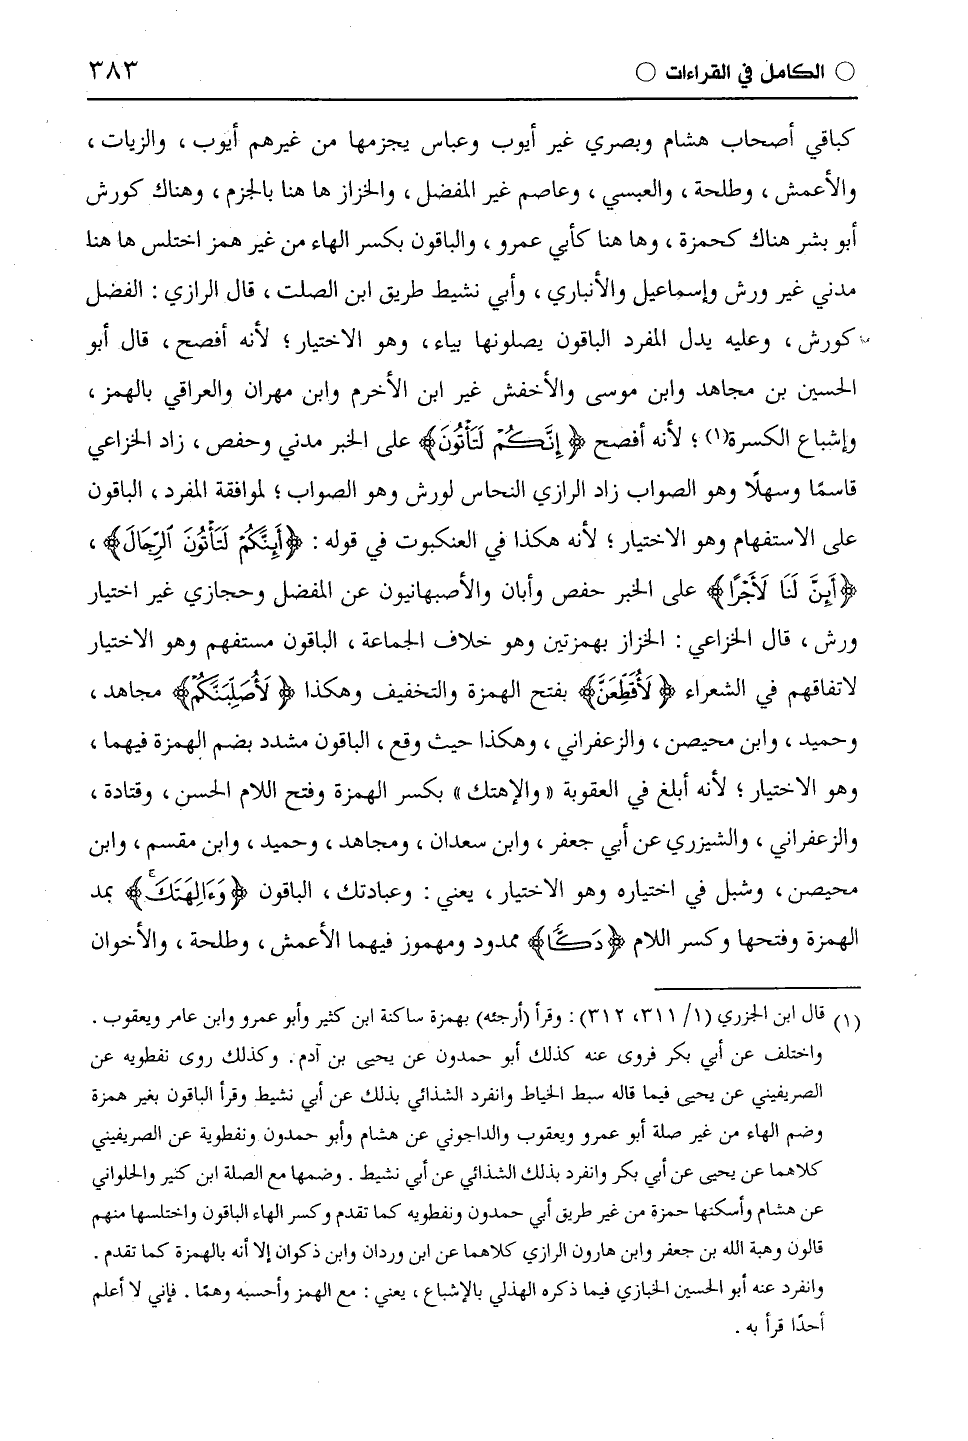 ○ الكامل في القراءات ○ ٣٨٣
كباقي أصحاب هشام وبصري غير أيوب وعباس يجزمها من غيرهم أيوب ، والزيات ،
والأعمش ، وطلحة ، والعبسي ، وعاصم غير المفضل ، والخزاز ها هنا بالجزم ، وهناك كورش
أبو بشر هناك كحمزة ، وها هنا كأبي عمرو ، والباقون بكسر الهاء من غير همز اختلس ها هنا
مدني غير ورش وإسماعيل والأنباري ، وأبي نشيط طريق ابن الصلت ، قال الرازي : الفضل
كورش ، وعليه يدل المفرد الباقون يصلونها بياء ، وهو الاختيار ؛ لأنه أفصح ، قال أبو
الحسين بن مجاهد وابن موسى والأخفش غير ابن الأخرم وابن مهران والعراقي بالهمز ،
وإشباع الكسرة(١) ؛ لأنه أفصح ﴿إِنَّكُمْ لَتَأْتُونَ﴾ على الخبر مدني وحفص ، زاد الخزاعي
قاسمًا وسهلًا وهو الصواب زاد الرازي النحاس لورش وهو الصواب ؛ لموافقة المفرد ، الباقون
على الاستفهام وهو الاختيار ؛ لأنه هكذا في العنكبوت في قوله : ﴿أَئِنَّكُمْ لَتَأْتُونَ ٱلرِّجَالَ﴾ ،
﴿أَئِنَّ لَنَا لَأَجْرًا﴾ على الخبر حفص وأبان والأصبهانيون عن المفضل وحجازي غير اختيار
ورش ، قال الخزاعي : الخزاز بهمزتين وهو خلاف الجماعة ، الباقون مستفهم وهو الاختيار
لاتفاقهم في الشعراء ﴿لَأُقَطِّعَنَّ﴾ بفتح الهمزة والتخفيف وهكذا ﴿لَأُصَلِّبَنَّكُمْ﴾ مجاهد ،
وحميد ، وابن محيصن ، والزعفراني ، وهكذا حيث وقع ، الباقون مشدد بضم الهمزة فيهما ،
وهو الاختيار ؛ لأنه أبلغ في العقوبة « والإهتك » بكسر الهمزة وفتح اللام الحسن ، وقتادة ،
والزعفراني ، والشيزري عن أبي جعفر ، وابن سعدان ، ومجاهد ، وحميد ، وابن مقسم ، وابن
محيصن ، وشبل في اختياره وهو الاختيار ، يعني : وعبادتك ، الباقون ﴿وَءَالِهَتَكَ﴾ بمد
الهمزة وفتحها وكسر اللام ﴿دَكًّا﴾ ممدود ومهموز فيهما الأعمش ، وطلحة ، والأخوان
(١) قال ابن الجزري (١/ ٣١١، ٣١٢) : وقرأ (أرجئه) بهمزة ساكنة ابن كثير وأبو عمرو وابن عامر ويعقوب .
واختلف عن أبي بكر فروى عنه كذلك أبو حمدون عن يحيى بن آدم . وكذلك روى نفطويه عن
الصريفيني عن يحيى فيما قاله سبط الخياط وانفرد الشذائي بذلك عن أبي نشيط وقرأ الباقون بغير همزة
وضم الهاء من غير صلة أبو عمرو ويعقوب والداجوني عن هشام وأبو حمدون ونفطوية عن الصريفيني
كلاهما عن يحيى عن أبي بكر وانفرد بذلك الشذائي عن أبي نشيط . وضمها مع الصلة ابن كثير والحلواني
عن هشام وأسكنها حمزة من غير طريق أبي حمدون ونفطويه كما تقدم وكسر الهاء الباقون واختلسها منهم
قالون وهبة الله بن جعفر وابن هارون الرازي كلاهما عن ابن وردان وابن ذكوان إلا أنه بالهمزة كما تقدم .
وانفرد عنه أبو الحسين الخبازي فيما ذكره الهذلي بالإشباع ، يعني : مع الهمز وأحسبه وهمًا . فإني لا أعلم
أحدًا قرأ به .